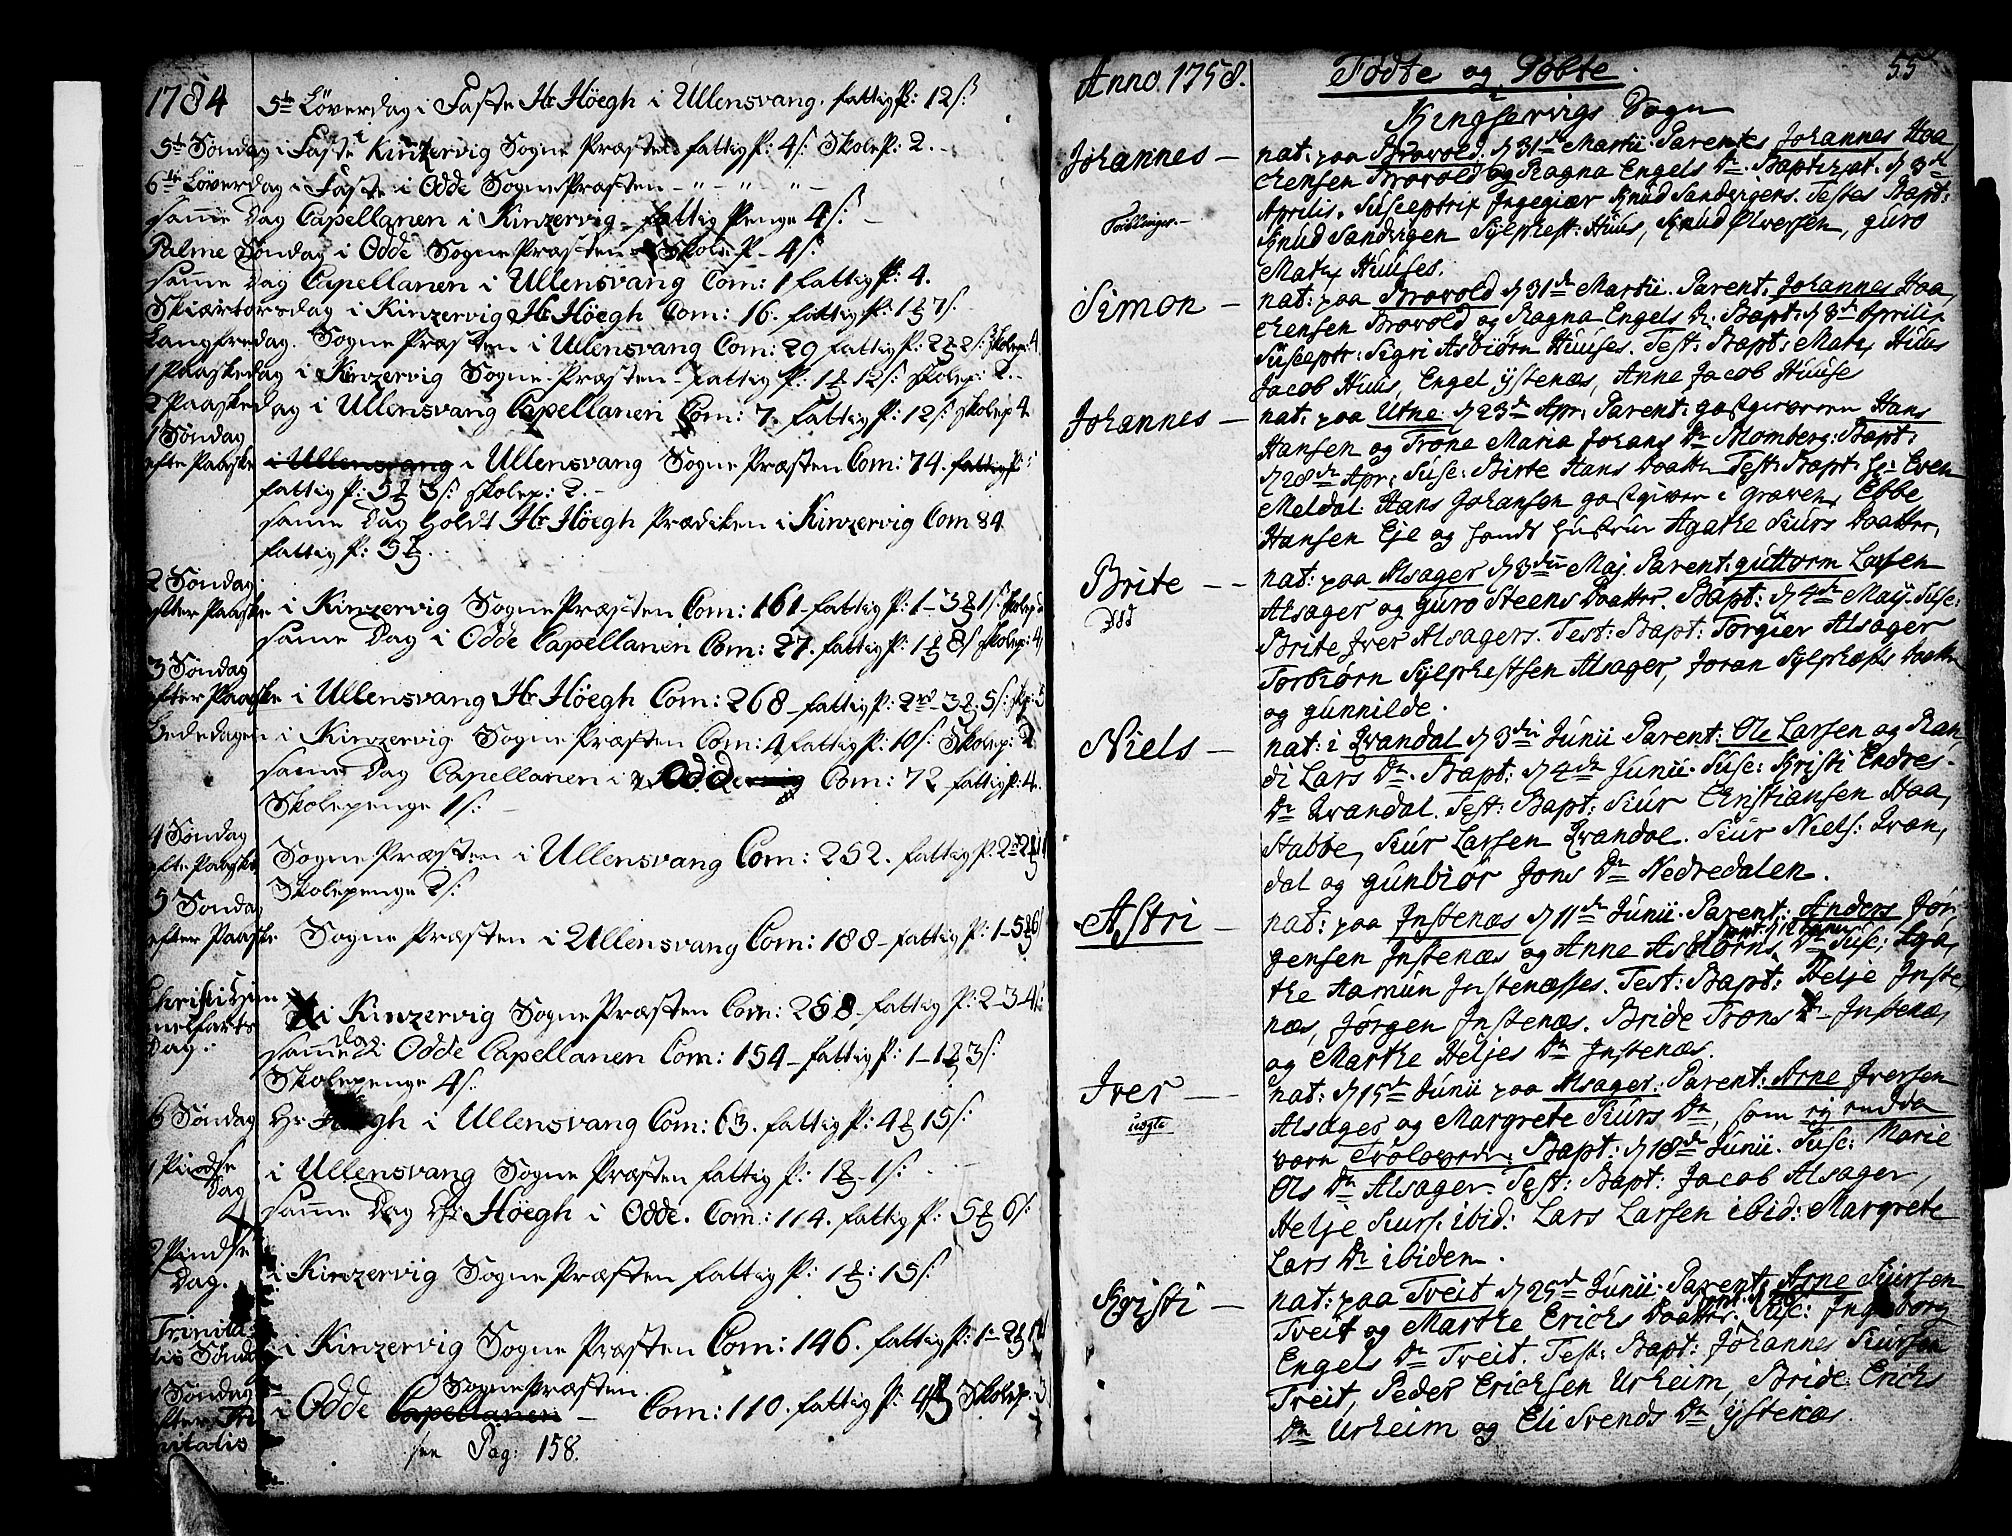 1784
5te Løverdag i Faste Hr Høegh i Ullensvang. fattig P: 12 s:
5te Søndag i Faste i Kintzervig Sogne Præsten fattig P: 4 s: Skole P: 2.
6te Løverdag i Faste i Odde Sogne Præsten
samme Dag Capellanen i Kinzervig fattig Penge 4 s:
Palme Søndag i Odde Sogne Præsten Skole P. 4 s:
samme Dag Capellanen i Ullensvang Com: 1 fattig P: 4.
Skiærtorsdag i Kinzervig Hr Høegh Com: 16. fattig P: 1 7 s.
Langfredag. Sogne Præsten i Ullensvang Com: 29 fattig P: 2 2 s: skolep: 4
1 Paaskedag i Kinzervig Sogne-Præsten fattig P: 1 12 s: skolep: 2.
2 Paaskedag i Ullensvang Capellanen Com: 7. fattig P: 12 s: skolep 4
1 Søndag
efter Paaske i Ullensvang i Ullensvang Sogne Præsten Com: 74. fattig P:
fattig P: 5 3 s: skolep: 2.
samme Dag holdt Hr Høegh Prædiken i Kinzervig Com 84.
fattig P: 5
2 Søndag
efter Paaske i Kinzervig Sogne Præsten Com: 161 fattig P: 1 - 3 1 s: skolep
samme Dag i Odde Capellanen Com: 27. fattig P: 1 8 s skolep: 4
3 Søndag
efter Paaske i Ullensvang Hr Høegh Com: 268 fattig P: 2 - 3. 5 s: skp: 3
Bededagen i Kinzervig Sogne Præsten Com: 4 fattig P: 10 s: Skolep: 2
samme Dag Capellanen i Odde Com: 72 fattig P: 4.
Skolepenge 1 s:
4 Søndag
efter Paaske Sogne Præsten i Ullensvang Com: 252. fattig P: 2
Skolepenge 2 s:
5 Søndag
efter Paaske Sogne Præsten i Ullensvang Com: 188 fattig P: 1-5 6
Christi Him
melfarts
Dag. i Kinzervig Sogne Præsten Com: 258 fattig P: 2-3-4 s:
samme Dag i Odde Capellanen Com: 154 fattig P: 1-1 3 s:
Skolepenge 4 s:
6 Søndag Hr Høegh i Ullensvang Com: 63. fattig P: 4 15 s:
1 Pindse
Dag i Ullensvang Sogne Præsten fattig P: 1 - 1 s:
samme Dag Hr Høegh i Odde. Com: 114. fattig P: 5 6 s:
2 Pindse
Dag. i Kinzervig Sogne Præsten fattig P: 1 : 15 s:
Trinita-
tis Søndag i Kinzervig Sogne Præsten Com: 146. fattig P: 1 - 2
1 Søndag
efter Tri
nitatis i Odde Capellanen Sogne Præsten. Com: 110. fattig P: 4 Skolep. 3
see Pag: 158.
Anno. 1758. Fødte og Døbte. 55
Kingservigs Sogn
Johannes nat: paa Brovold d 31te Martii. Parentes Johannes Haa,
chensen Brovold og Ragna Engels Dr. Baptizat. d 3de
Aprilis. Susceptrix Ingegiær Knud Sandvigens. Testes Bapt:
Tvillinger. Knud Sandvigen Sylphest: Huus, Knud Olversen, guro
Mats Huuses.
Simon nat: paa Brovold d 31te Martii. Parent. Johannes Haa,
chensen Brovold og Ragna Engels Dr. Bapt: d 8de Aprilis
Susceptr: Sigri Asbiørn Huuses. Test: Bapt: Mats Huus
Jacob Huus, Engel ystenæs, Anne Jacob Huuse
Johannes nat: paa Utne. d 23de Apr: Parent: gastgiveren Hans
Hansen og Trone Maria Johans Dr Blomberg: Bapt:
d 28de Apr: Susc: Birte Hans Daatter Test: Bapt: Hr Even
Meldal. Hans Johansen gastgiver i Graven, Ebbe
Hansen Eje og hands Hustrue Agathe Siurs Daatter,
Brite nat: paa Alsager d 3die Maj. Parent: guttorm Larsen
Alsager og guro Steens Daatter. Bapt: d 4de May. Susc:
Død Brite Iver Alsagers. Test: Bapt: Torgier Alsager
Torbiørn Sylphestsen Alsager, Joran Sylphæsts Daatter
og gunnilde.
Niels nat: i Qvandal d 3die Junii Parent: Ole Larsen og Ran,
di Lars Dr. Bapt: d 4de Junii. Susc: Kristi Endres-
Dr Qvandal. Test: Bapt: Siur Christiansen Haa,
stabbe, Siur Larsen Qvandal. Siur Niels: Qvan,
dal og gunbiør Jons Dr Nedredalen.
Astri nat: paa Instenæs d 11te Junii. Parent: Anders Jør,
gensen Instenæs og Anne Asbiørns Dr Susc: Aga,
the Aamun Instenæsses. Test: Bapt: Helje Inste,
næs, Jørgen Instenæs. Bride Trons Dr Instenæ,
og Marthe Heljes Dr Instenæs.
Iver nat: d 15de Junii paa Alsager: Parent: Arne Iversen
uægte Alsager og Margrete Siurs Dr, som ej endda
vare Trolovede. Bapt: d 18de Junii. Susc: Marie
Ols Dr Alsager. Test: Bapt: Jacob Alsager,
Helje Siurs. ibid: Lars Larsen ibid: Margrete
Lars Dr ibidem.
Kristi nat: paa Treit d 25de Junii. Parent: Arne Siursen
Treit og Marthe Erichs Daatter. Susc: Ingeborg
Engels Dr Treit. Test: Bapt: Johannes Siursen
Treit, Peder Erichsen Urheim, Bride Erichs
Dr Urheim og Eli Svends Dr ystenæs.